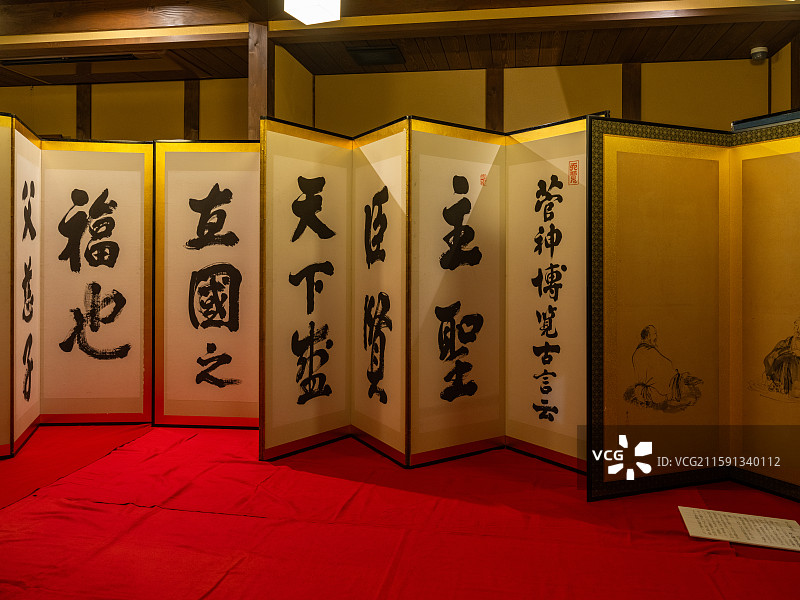 菅神博覧古言云
主聖
臣賢
天下盛
直國之
福也
父慈子
VCG
VCG.COM
ID:VCG211591340112